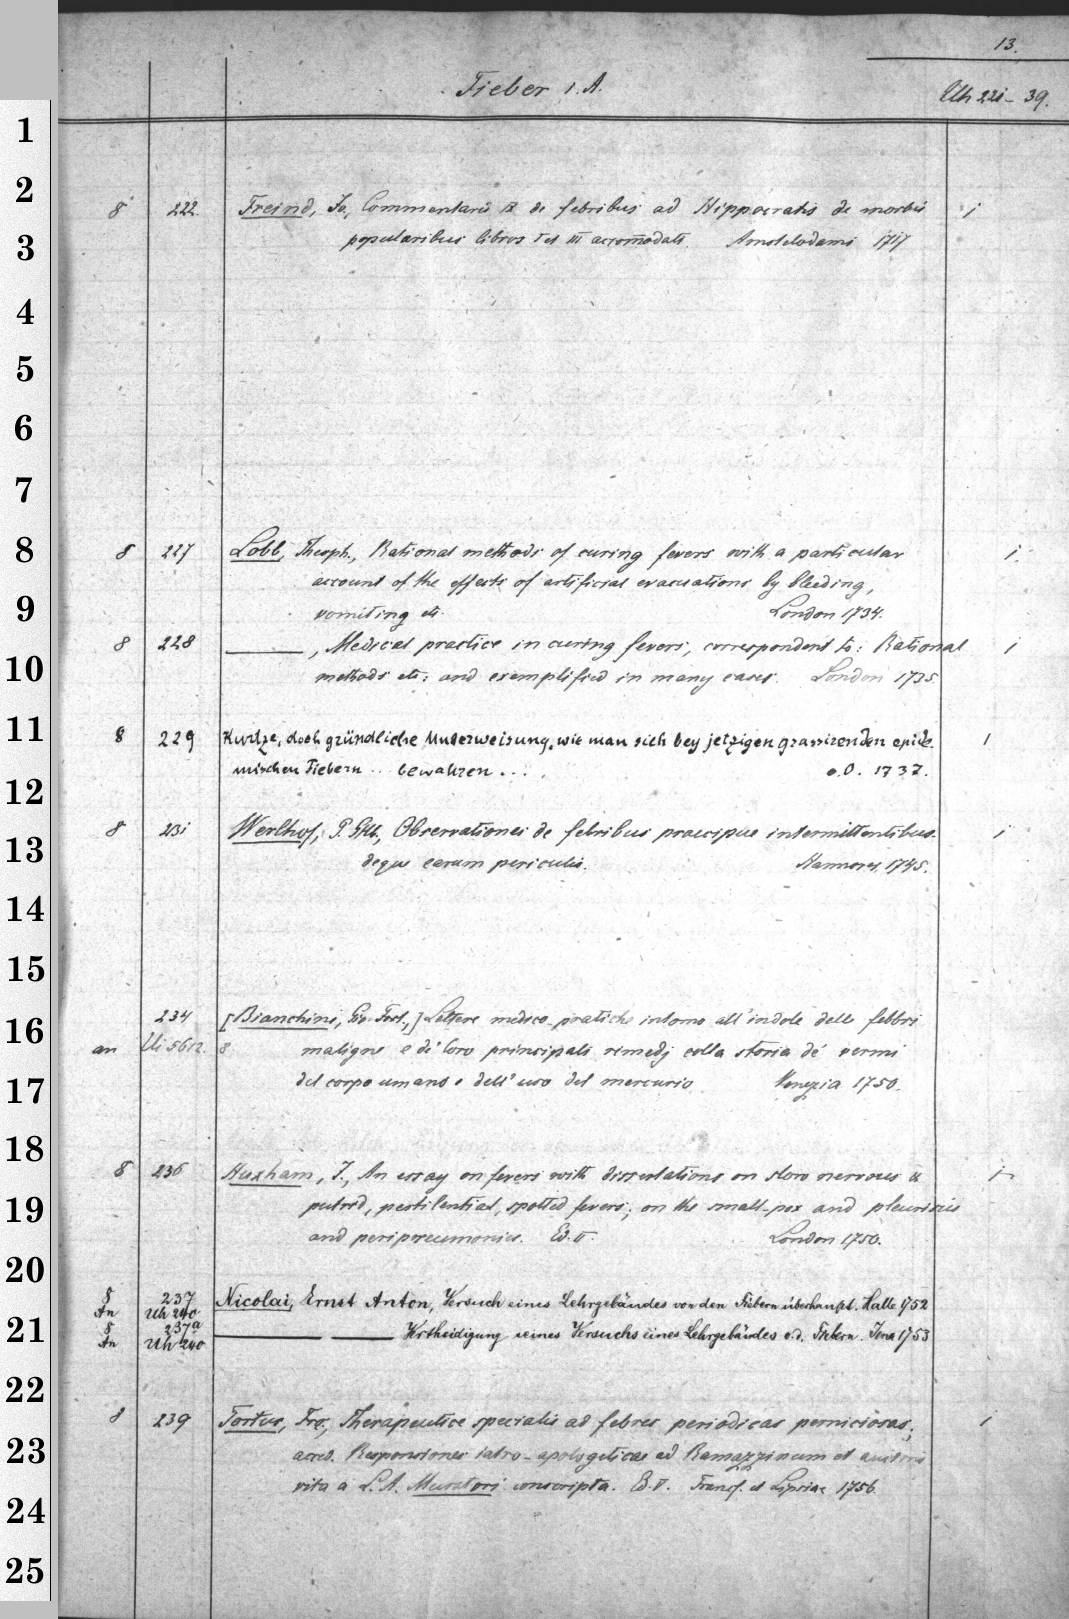 13.
Fieber i. A.
Uh 221-39.
1
2
8 222. Freind, Jo., Commentarii IX de febribus ad Hippocratis de morbis i
3
popularibus libros I et III accomodati. Amstelodami 1717
4
5
6
7
8
8 227 Lobb, Theoph., Rational methods of curing fevers with a particular i.
account of the effects of artificial evacuations by bleeding,
9
vomiting etc. London 1734.
8 228 ———, Medical practice in curing fevers, correspondent to: Rational i
10
methods etc: and exemplified in many cases. London 1735.
11
8 229 Kurtze, doch gründliche Unterweisung, wie man sich bey jetzigen grassirenden epide- i
mischen Fiebern .. bewahren ... o.O. 1737.
12
8 231 Werlhof, P. Glb., Observationes de febribus praecipue intermittentibus i
13
deque earum periculis. Hannover. 1745.
14
15
234 [Bianchini, Giv. Fort.,] Lettere medico-pratiche intorno all'indole delle febbri
16
an Ui 5612. 8 maligne e de' loro principali rimedj colla storia de' vermi
17
del corpo umano e dell'uso del mercurio. Venezia 1750.
18
8 236 Huxham, J., An essay on fevers with dissertations on slow nervous & i
19
putrid, pestilential, spotted fevers; on the small-pox and pleurisies
and peripneumonies. Ed. II. London 1750.
20
8 237 Nicolai, Ernst Anton, Versuch eines Lehrgebäudes von den Fiebern überhaupt. Halle 1752
An Uh 240
21
8 237a ——— ——— Vertheidigung seines Versuchs eines Lehrgebäudes v.d. Fiebern. Jena 1753
An Uh 240
22
8 239 Tortus, Frc., Therapeutice specialis ad febres periodicas perniciosas; i
23
acced. Responsiones iatro-apologeticae ad Ramazzinum et auctoris
vita a L. A. Muratori conscripta. Ed. V. Francf. et Lipsiae 1756.
24
25